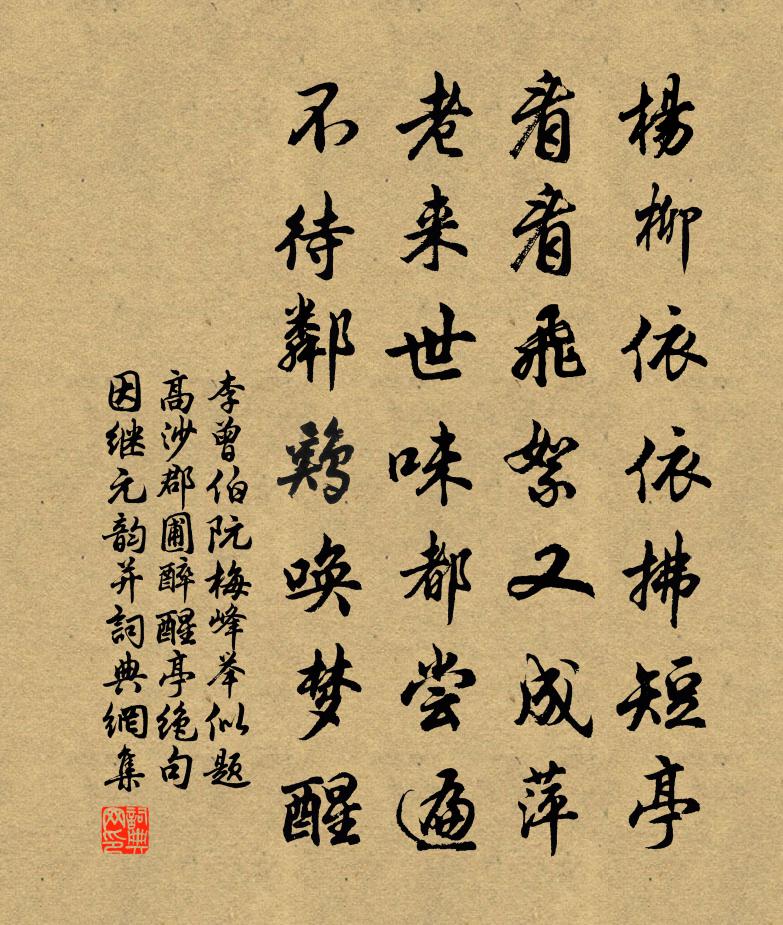 楊柳依依拂短亭
看看飛絮又成萍
老来世味都尝遍
不待鄰鷄唤梦醒
李曾伯阮梅峰举似题
高沙郡圃醉醒亭绝句
因继元韵并詞典網集
詞典网印